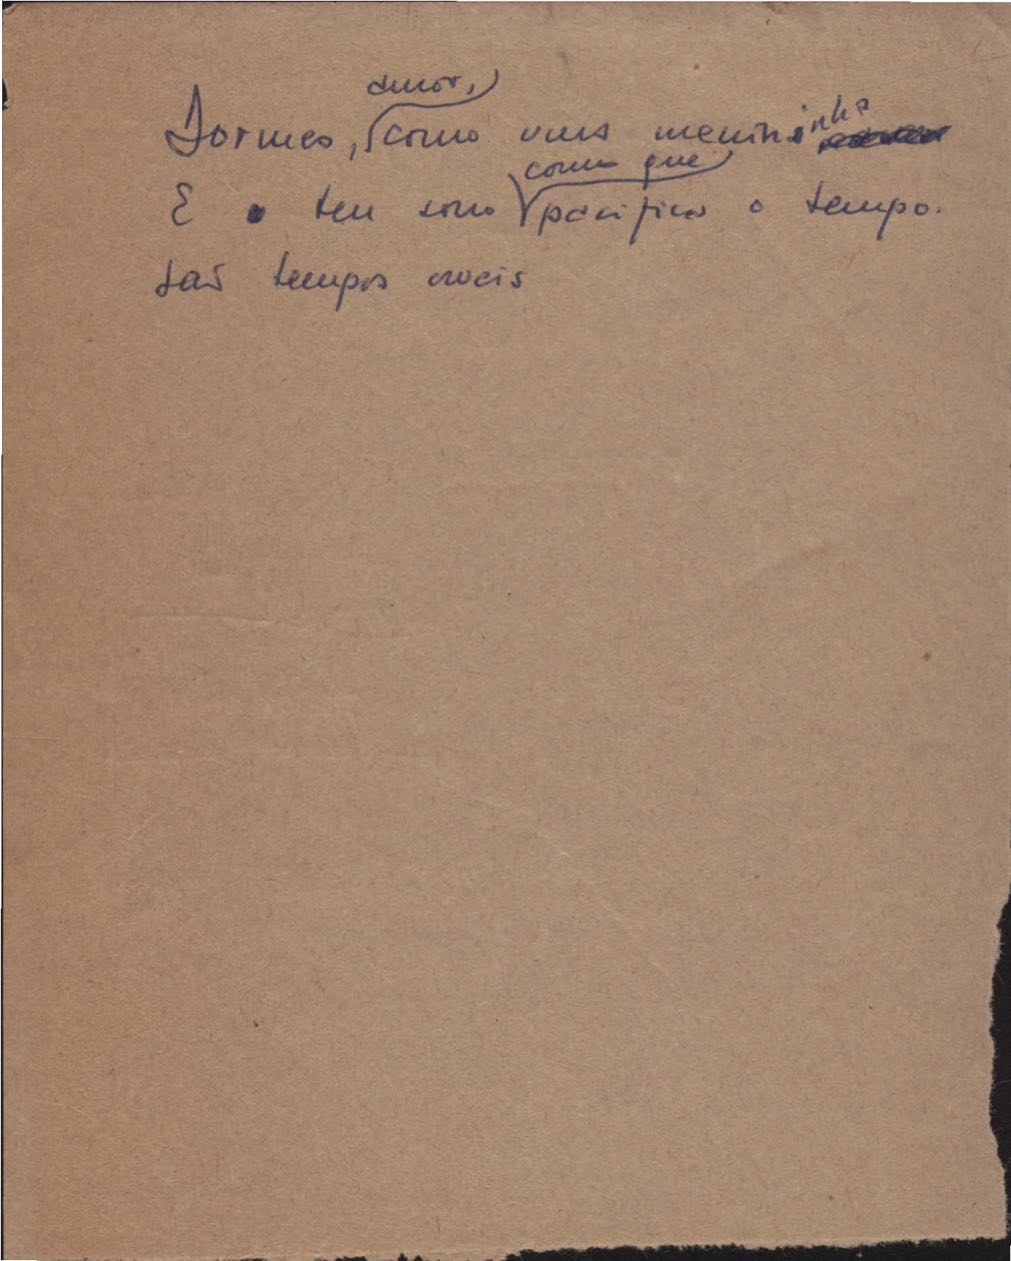 amor,
Dormes, como uma menininha
como que
E o teu sono pacifica o tempo.
São tempos cruéis